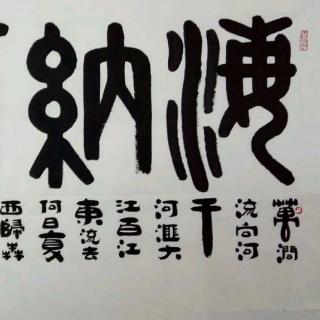 海納
萬澗
流向河
千
河匯大
江百江
東流去
何日复
西歸